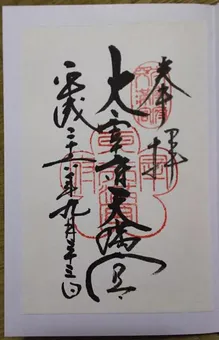 奉拝
太宰府天満宮
平成二十六年九月二十三日